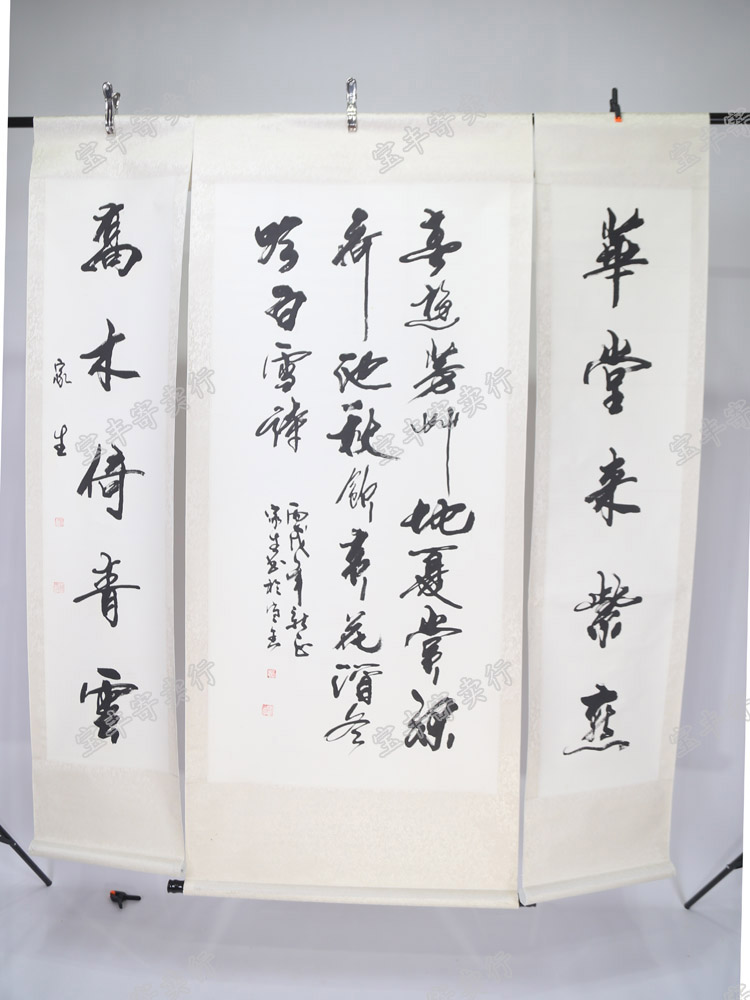 華堂来紫燕
春遊芳艸地夏賞綠
荷池秋飲黄花酒冬
吟白雪詩
丙戌年新正
家生书於
喬木倚青雲
家生
宝丰寄卖行
宝丰寄卖行
宝丰寄卖行
宝丰寄卖行
宝丰寄卖行
宝丰寄卖行